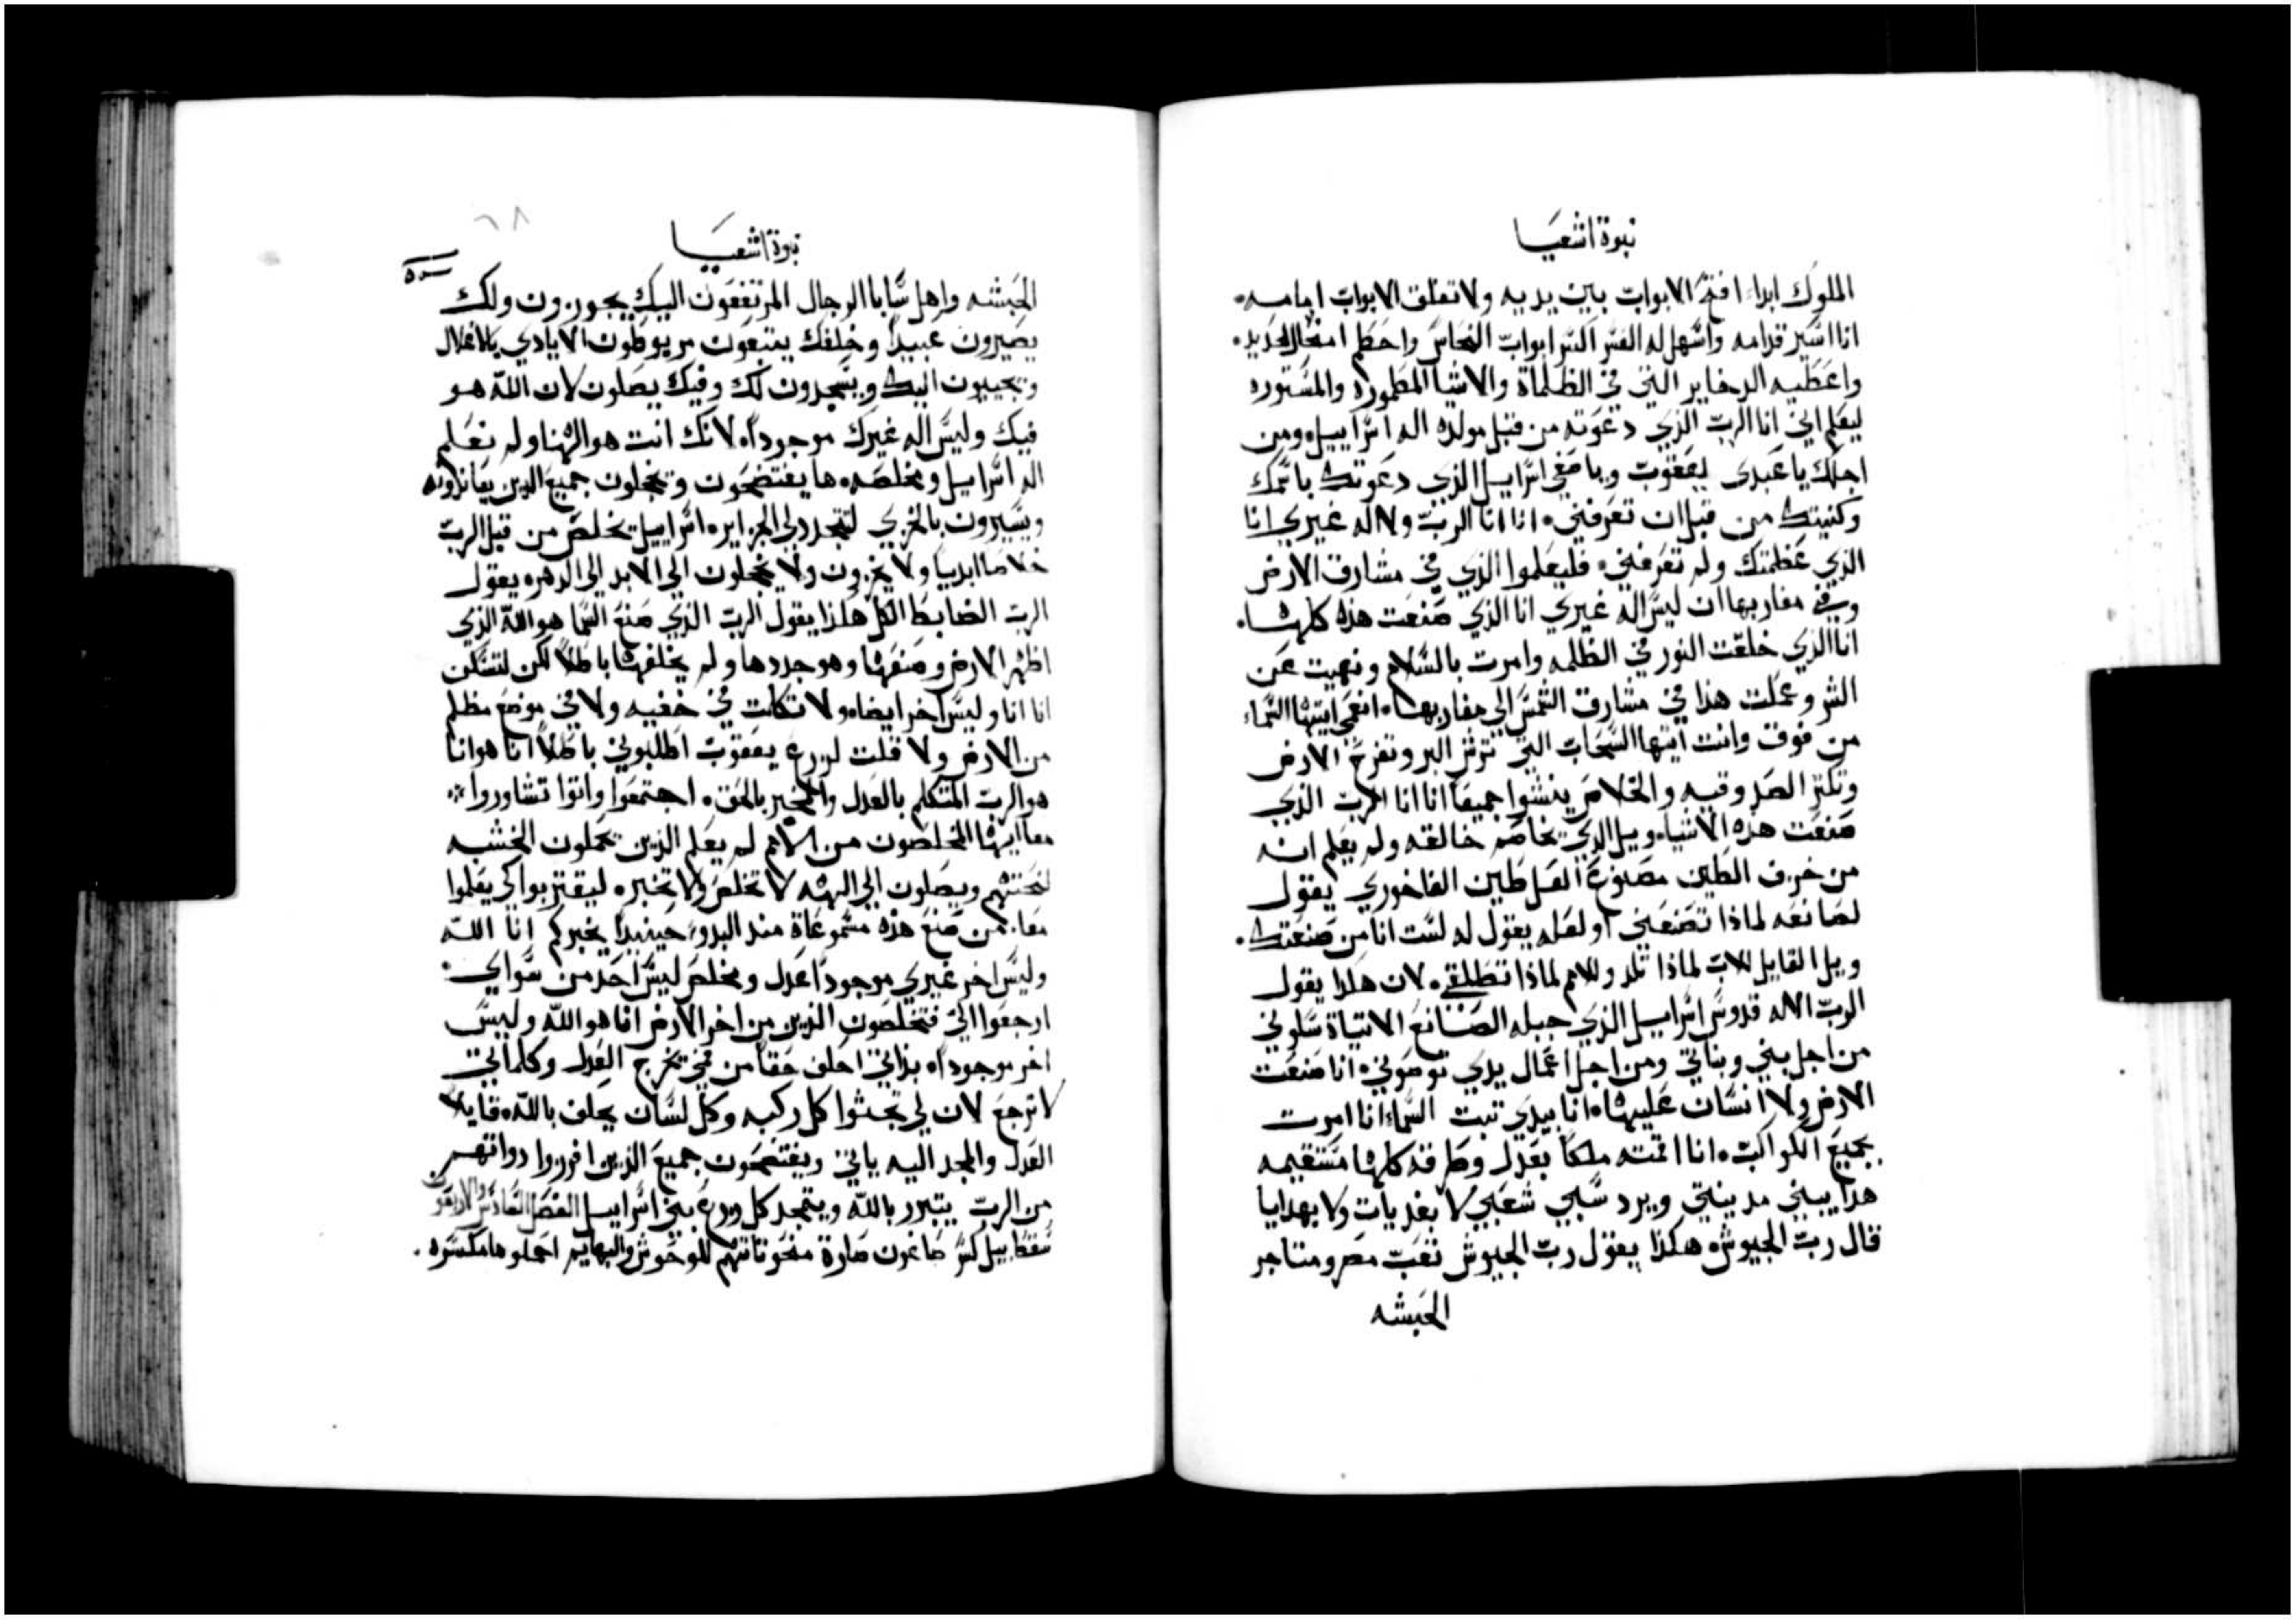 نبوة اشعيا
الملوك ابدا، افتح الابواب بين يديه ولا تغلق الابواب امامه.
انا اسير قدامه واسهل له اكسر ابواب النحاس واحطم امخال الحديد.
واعطيه الدخاير التي في الظلماة والاشيا المطموره والمستوره
ليعلم اني انا الرب الذي دعوته من قبل مولده اله اسراييل ومن
اجلك يا عبدى يعقوب ويا صفي اسراييل الذي دعوتك باسمك
وكنيتك من قبل ان تعرفني، انا انا الرب ولا اله غيري انا
الذي عظمتك ولم تعرفني، فليعلموا الذي في مشارق الارض
وفي مغاربها ان ليس اله غيري انا الذي صنعت هذه كلها.
انا الذي خلقت النور في الظلمه وامرت بالسلام ونهيت عن
الشر وعملت هذا في مشارق الشمس الي مغاربها، انعمي ايتها السماء
من فوق وانت ايتها السحاب التي ترش البر وتفرح الارض
وتكثر الصدوقيه والخلاص ينشوا جميعا انا انا الرب الذي
صنعت هذه الاشياء ويل الذي يخاصم خالقه ولم يعلم انه
من خزف الطين مصنوع العل طين الفاخوري يقول
لصانعه لماذا تصنعني او لعله يقول له لست انا من صنعتك.
ويل القايل للاب لماذا تلد وللام لماذا تطلقي، لان هكذا يقول
الرب الاله قدوس اسراييل الذي جبله الصانع الاتياة سلوني
من اجل بني وبناتي ومن اجل اعمال يدي توصوني، انا صنعت
الارض والانسان عليها، انا بيدي تبت السماء انا امرت
بجميع الكواكب، انا اقمته ملكا بعدل وطرقه كلها مستقيمه
هذا يبني مدينتي ويرد سبي شعبي لا بفديات ولا بهدايا
قال رب الجيوش، هكذا يقول رب الجيوش تعب مصر ومتاجر
الحبشه
٦٨
نبوة اشعيا
الحبشه واهل سابا الرجال المرتفعون اليك يجوزون ولك
يصيرون عبيدا وخلفك يتبعون مربوطون الايادي بالاغلال
ويجيبون اليك ويسجدون لك وفيك يصلون لان الله هو
فيك وليس اله غيرك موجودا، لانك انت هو الهنا ولم نعلم
اله اسراييل ومخلصه، ها يفتضحون ويخجلون جميع الذين يعاندونه
ويسيرون بالخزي لتتجدد لي الجزاير، اسراييل يخلص من قبل الرب
خلاصا ابديا ولا يخزون ولا يخجلون الي الابد الي الدهر، يقول
الرب الضابط الكل هكذا يقول الرب الذي صنع السما هو الله الذي
اظهر الارض وصنعها وهو جددها ولم يخلقها باطلا لكن لتسكن
انا انا وليس اخر ايضا، ولا تكلمت في خفيه ولا في موضع مظلم
من الارض ولا قلت لزرع يعقوب اطلبوني باطلا انا هو انا
هو الرب المتكلم بالعدل والمخبر بالحق، اجتمعوا واتوا تشاوروا
معا ايها المخلصون من الامم لم يعلم الذين يحملون الخشبه
نحتتهم ويصلون الي الهه لا تخلص ولا تخبر، ليقتربوا كي يعلموا
معا، من صنع هذه مسموعاة منذ البدو، حينيذ يخبركم انا الله
وليس اخر غيري موجودا عدل ومخلص ليس احد من سواي
ارجعوا الي فتخلصون الذين من اخر الارض انا هو الله وليس
اخر موجودا، بذاتي احلف حقا من فمي يخرج العدل وكلماتي
لا ترجع لان لي تجثوا كل ركبه وكل لسان يحلف بالله، قايلا
العدل والمجد اليه ياتي ويفتضحون جميع الذين افرزوا دواتهم
من الرب يتبرر بالله ويتمجد كل زرع بني اسراييل الفصل السادس والاربعون
سقط بيل كسر طاغون صارة منحوتاتهم للوحوش والبهايم احملوها مكسره.